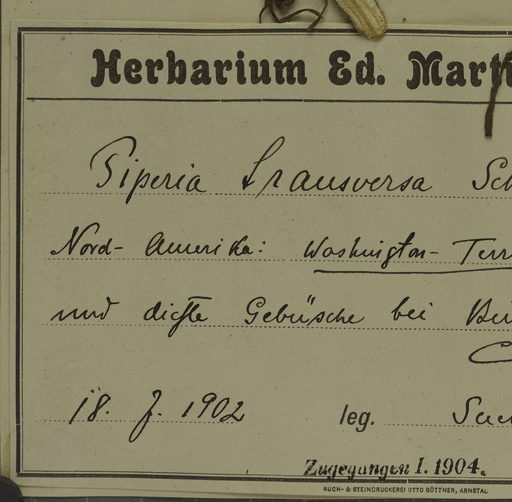 Herbarium Ed. Mart
Piperia transversa Sch
Nord-Amerika: Washington-Terr
und dichte Gebüsche bei
18. 7. 1902 leg. Suc
Zugegangen I. 1904.
BUCH- & STEINDRUCKEREI OTTO BÖTTNER, ARNSTAD